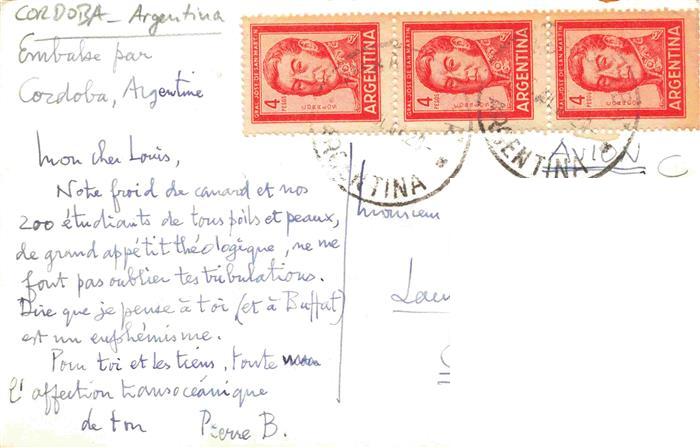 CORDOBA - Argentina
Embalse par
Cordoba, Argentine
GRAL. JOSE DE SAN MARTIN
4 PESOS
CORREOS
ARGENTINA
GRAL. JOSE DE SAN MARTIN
4 PESOS
CORREOS
ARGENTINA
GRAL. JOSE DE SAN MARTIN
4 PESOS
CORREOS
ARGENTINA
ARGENTINA
RGENTINA
AVION
C
Mon cher Louis,
Notre froid de canard et nos
200 étudiants de tous poils et peaux,
de grand appétit théologique, ne me
font pas oublier tes tribulations.
Dire que je pense à toi (et à Buffat)
est un euphémisme.
Pour toi et les tiens, toute
l'affection transocéanique
de ton Pierre B.
Monsieur
Lau